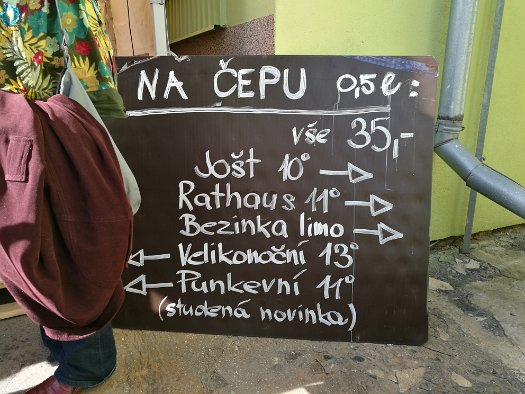 NA ČEPU 0,5ℓ:
vše 35,-
Jošt 10° →
Rathaus 11° →
Bezinka limo →
← Velikonoční 13°
← Punkevní 11°
(studená novinka)